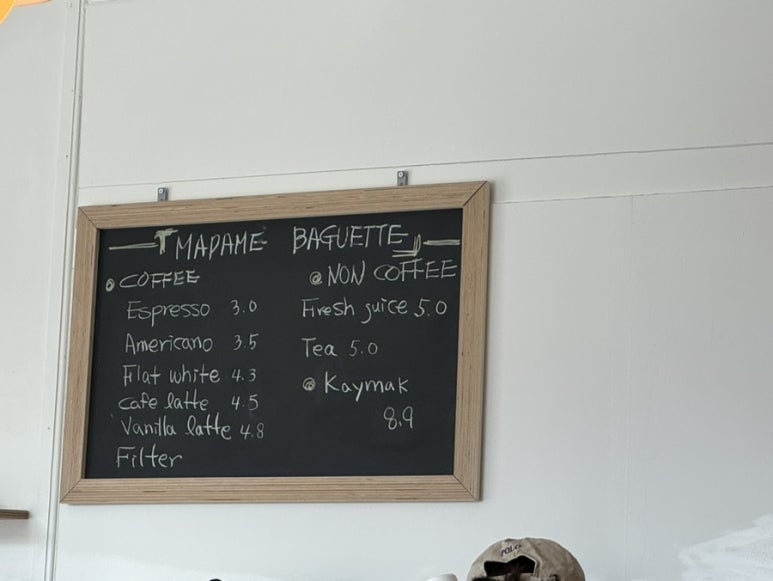 MADAME BAGUETTE
COFFEE
Espresso 3.0
Americano 3.5
Flat white 4.3
Cafe latte 4.5
Vanilla latte 4.8
Filter
@ NON COFFEE
Fresh juice 5.0
Tea 5.0
@ Kaymak
8.9
POLO